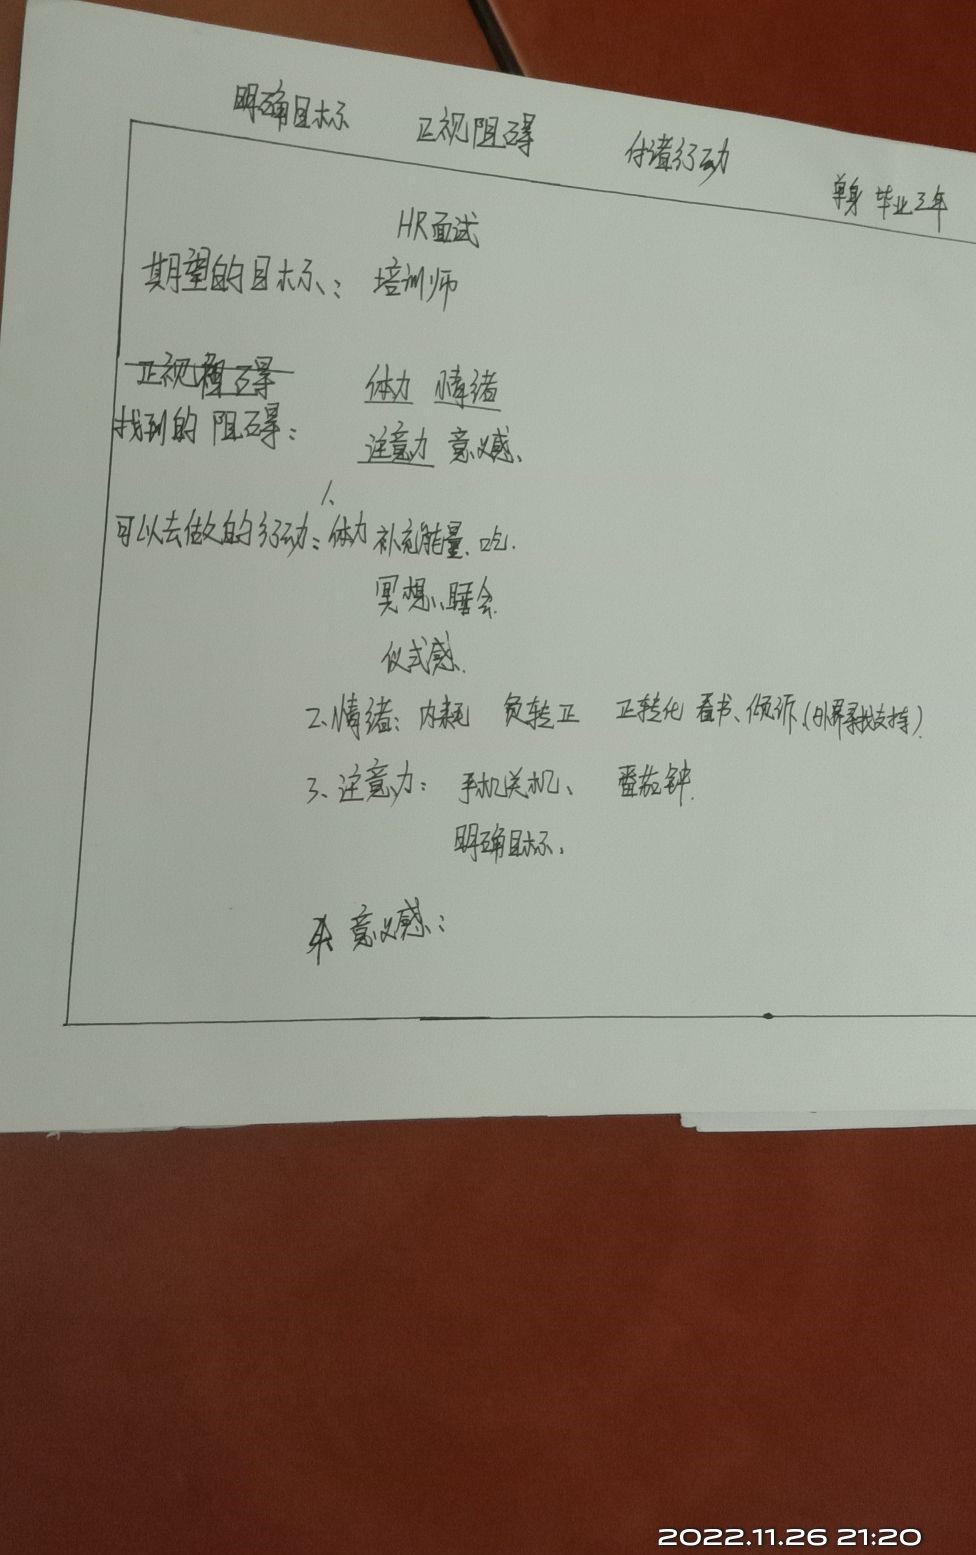 明确目标 正视阻碍 付诸行动 单身 毕业三年
HR面试
期望的目标： 培训师
正视阻碍 体力 情绪
找到的阻碍： 注意力 意义感、
可以去做的行动： 1、体力 补充能量、吃.
冥想、睡会.
仪式感.
2、情绪： 内耗 负转正 正转化 看书、倾诉、(外界寻找支持).
3、注意力： 手机关机、 番茄钟.
明确目标、
意义感：
2022.11.26 21:20